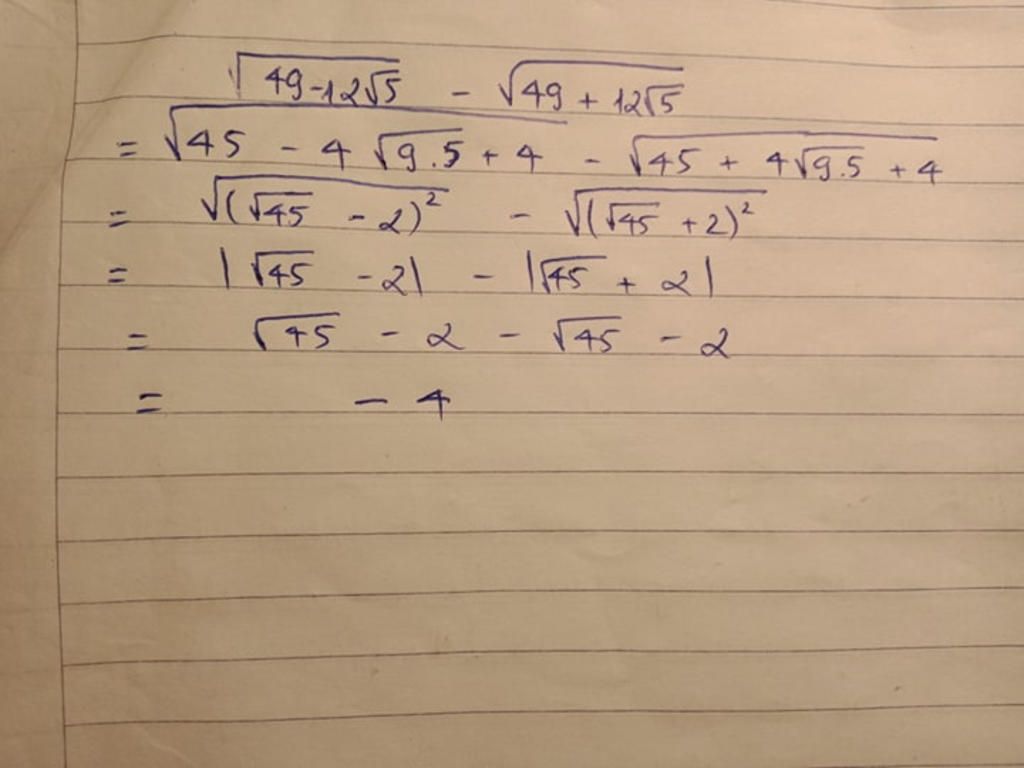 √(49-12√5) - √(49 + 12√5)
= √(45 - 4√(9.5) + 4) - √(45 + 4√(9.5) + 4)
= √((√45 - 2)²) - √((√45 + 2)²)
= |√45 - 2| - |√45 + 2|
= √45 - 2 - √45 - 2
= - 4